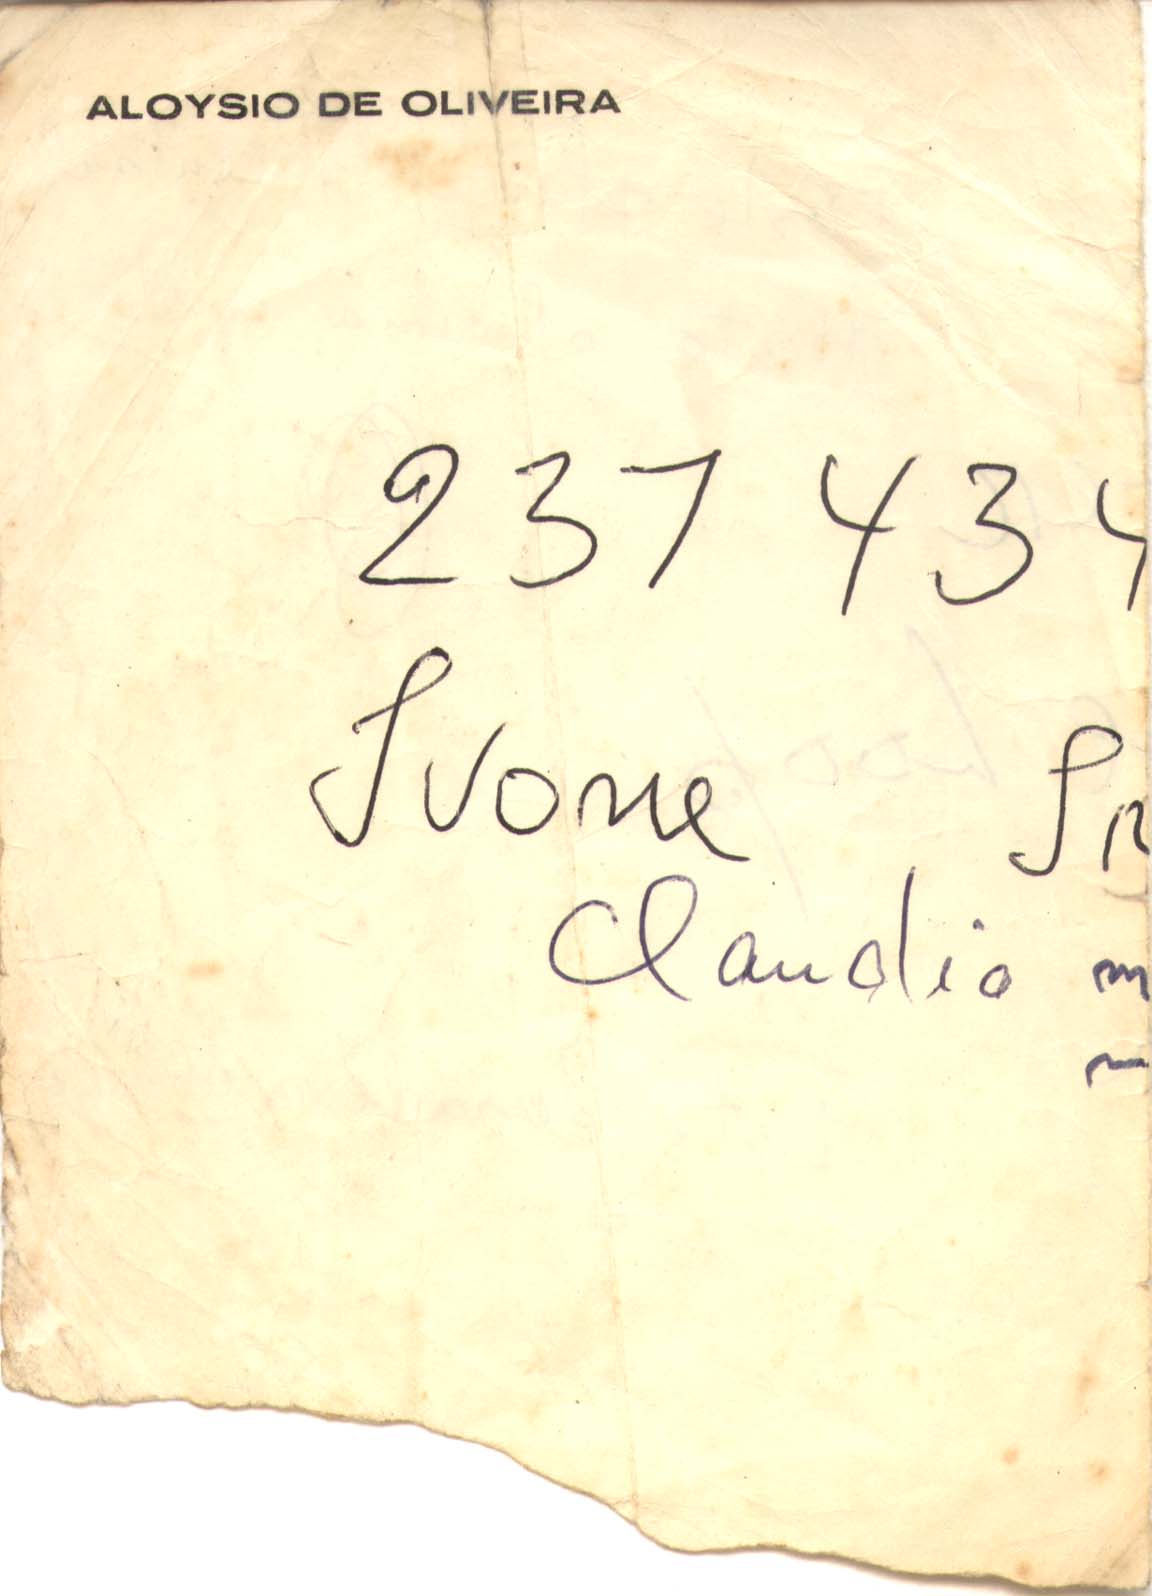 ALOYSIO DE OLIVEIRA
237 434
Ivone
Claudio